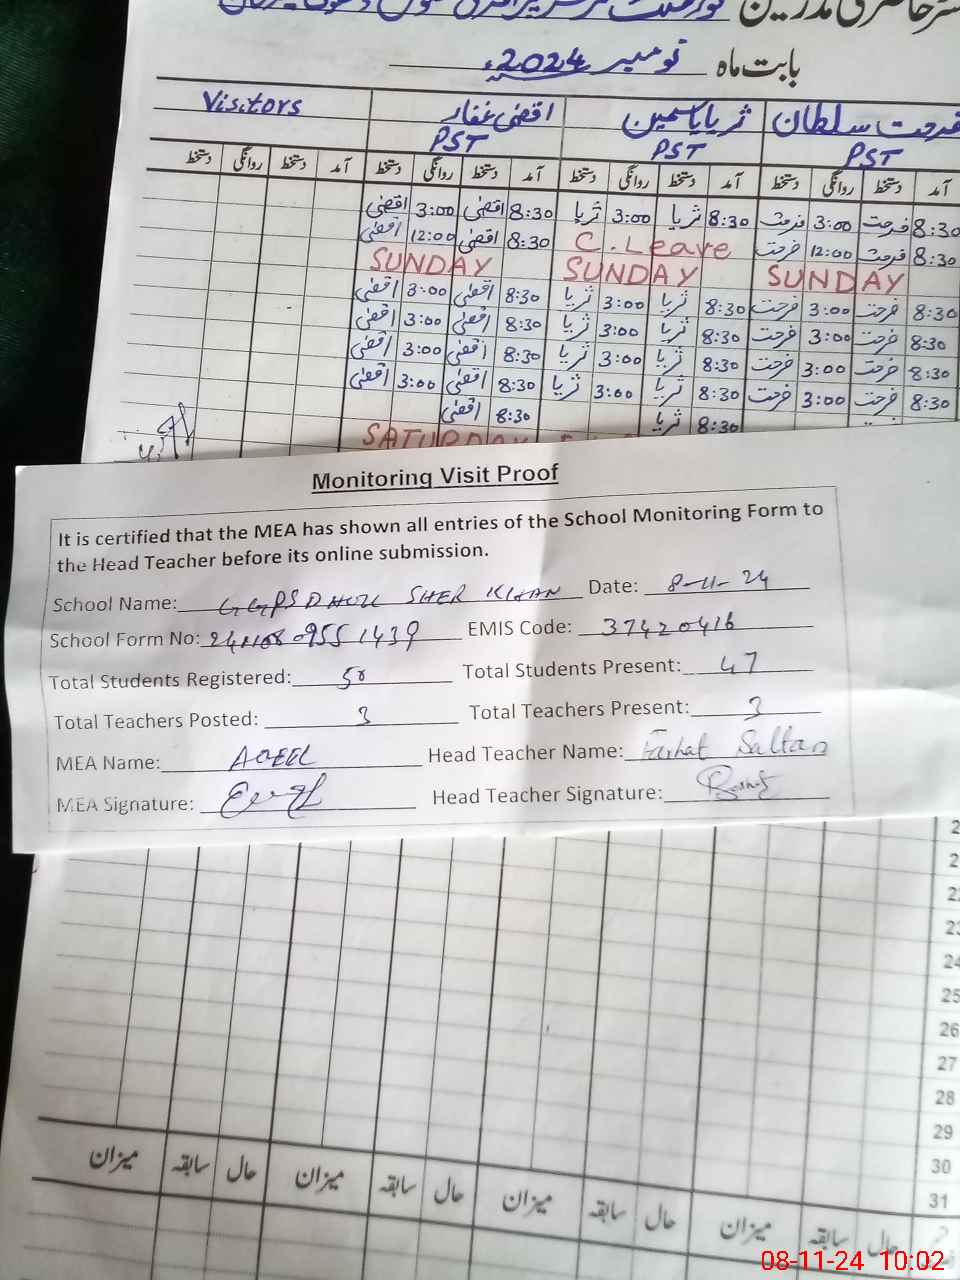 بابت ماہ نومبر 2024ء
Visitors اقضیٰ غفار ثریا یاسمین فرحت سلطان
PST PST PST
دستخط روانگی دستخط آمد دستخط روانگی دستخط آمد دستخط روانگی دستخط آمد دستخط روانگی دستخط آمد
اقضیٰ 3:00 اقضیٰ 8:30 ثریا 3:00 ثریا 8:30 فرحت 3:00 فرحت 8:30
اقضیٰ 12:00 اقضیٰ 8:30 C. Leave فرحت 12:00 فرحت 8:30
SUNDAY SUNDAY SUNDAY
اقضیٰ 3:00 اقضیٰ 8:30 ثریا 3:00 ثریا 8:30 فرحت 3:00 فرحت 8:30
اقضیٰ 3:00 اقضیٰ 8:30 ثریا 3:00 ثریا 8:30 فرحت 3:00 فرحت 8:30
اقضیٰ 3:00 اقضیٰ 8:30 ثریا 3:00 ثریا 8:30 فرحت 3:00 فرحت 8:30
اقضیٰ 3:00 اقضیٰ 8:30 ثریا 3:00 ثریا 8:30 فرحت 3:00 فرحت 8:30
اقضیٰ 8:30 ثریا 8:30
SATURDAY
Monitoring Visit Proof
It is certified that the MEA has shown all entries of the School Monitoring Form to
the Head Teacher before its online submission.
School Name: GGPS DHOK SHER KHAN Date: 8-11-24
School Form No: EMIS Code: 37420416
Total Students Registered: 50 Total Students Present: 47
Total Teachers Posted: 3 Total Teachers Present: 3
MEA Name: AQEEL Head Teacher Name: Farhat Sultan
MEA Signature: Head Teacher Signature:
23
24
25
26
27
28
29
30
31
میزان سابقہ حال میزان سابقہ حال میزان سابقہ حال میزان سابقہ حال
08-11-24 10:02